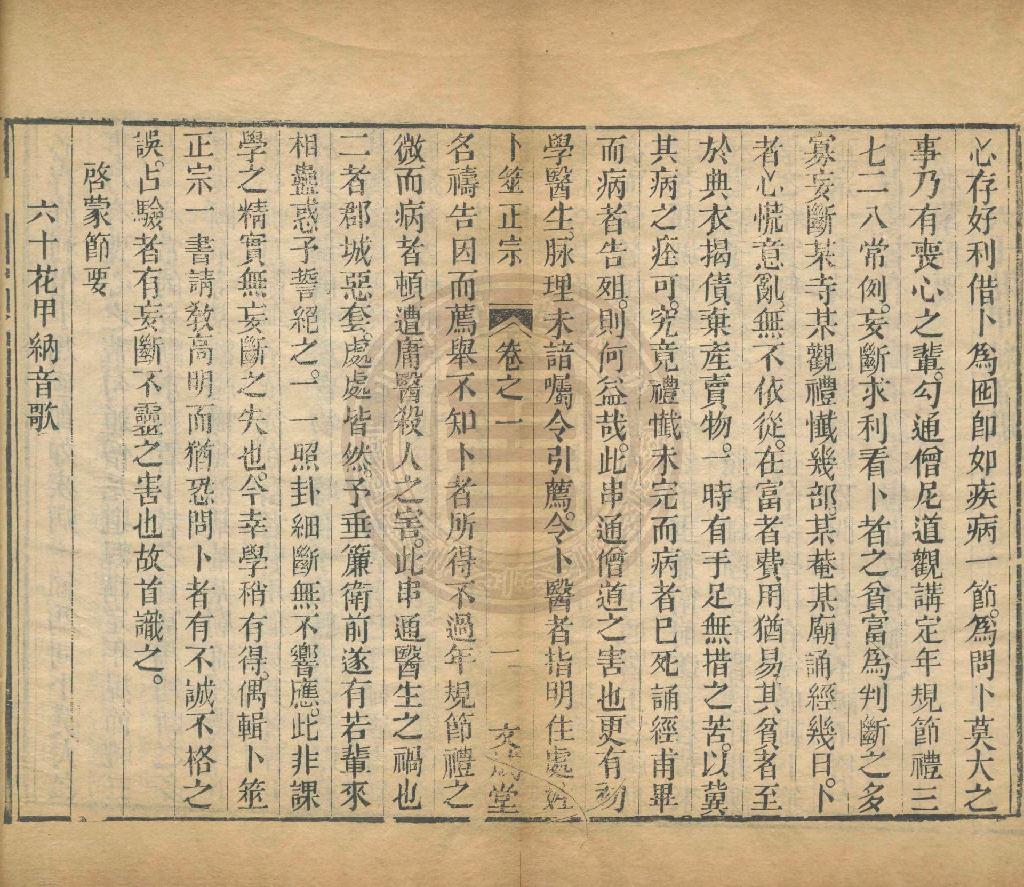 心存好利借卜爲囮卽如疾病一節。爲問卜莫大之
事乃有喪心之輩。勾通僧尼道觀講定年規節禮三
七二八常例。妄斷求利看卜者之貧富爲判斷之多
寡妄斷某寺某觀禮懺幾部。某菴某廟誦經幾日。卜
者心慌意亂。無不依從。在富者費用猶易其貧者至
於典衣揭債棄產賣物。一時有手足無措之苦。以冀
其病之痊可。究竟禮懺未完而病者已死誦經甫畢
而病者告殂。則何益哉。此串通僧道之害也更有初
學醫生。脉理未諳囑令引薦。令卜醫者指明住處姓
卜筮正宗 卷之一 一 堂
名禱告因而薦舉不知卜者所得不過年規節禮之
微而病者頓遭庸醫殺人之害。此串通醫生之禍也
二者郡城惡套。處處皆然。予垂簾衛前遂有若輩來
相蠱惑予誓絕之。一一照卦細斷無不響應。此非課
學之精實無妄斷之失也。今幸學稍有得。偶輯卜筮
正宗一書請教高明而猶恐問卜者有不誠不格之
誤。占驗者有妄斷不靈之害也故首識之。
啓蒙節要
六十花甲納音歌